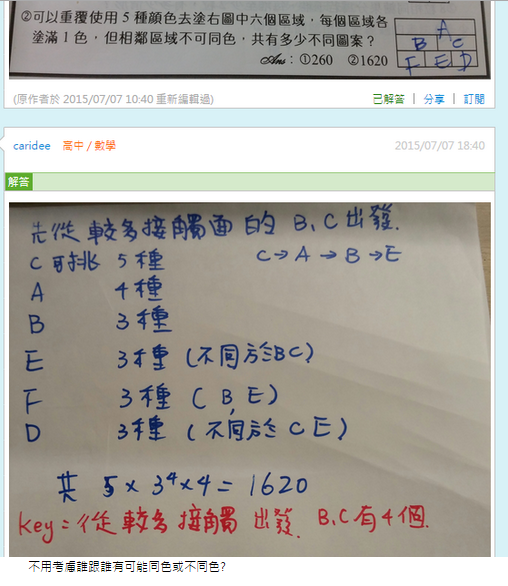 ②可以重覆使用 5 種顏色去塗右圖中六個區域，每個區域各
塗滿 1 色，但相鄰區域不可同色，共有多少不同圖案？
Ans：①260 ②1620
A
B C
F E D
(原作者於 2015/07/07 10:40 重新編輯過)
已解答 | 分享 | 訂閱
caridee 高中 / 數學 2015/07/07 18:40
解答
先從 較多接觸面 的 B、C 出發.
C 可挑 5 種 C→A→B→E
A 4 種
B 3 種
E 3 種 (不同於BC)
F 3 種 ( B, E )
D 3 種 ( 不同於 C E )
共 5 × 3⁴ × 4 = 1620
key = 從 較多 接觸 出發. B、C 有 4 個.
不用考慮誰跟誰有可能同色或不同色?